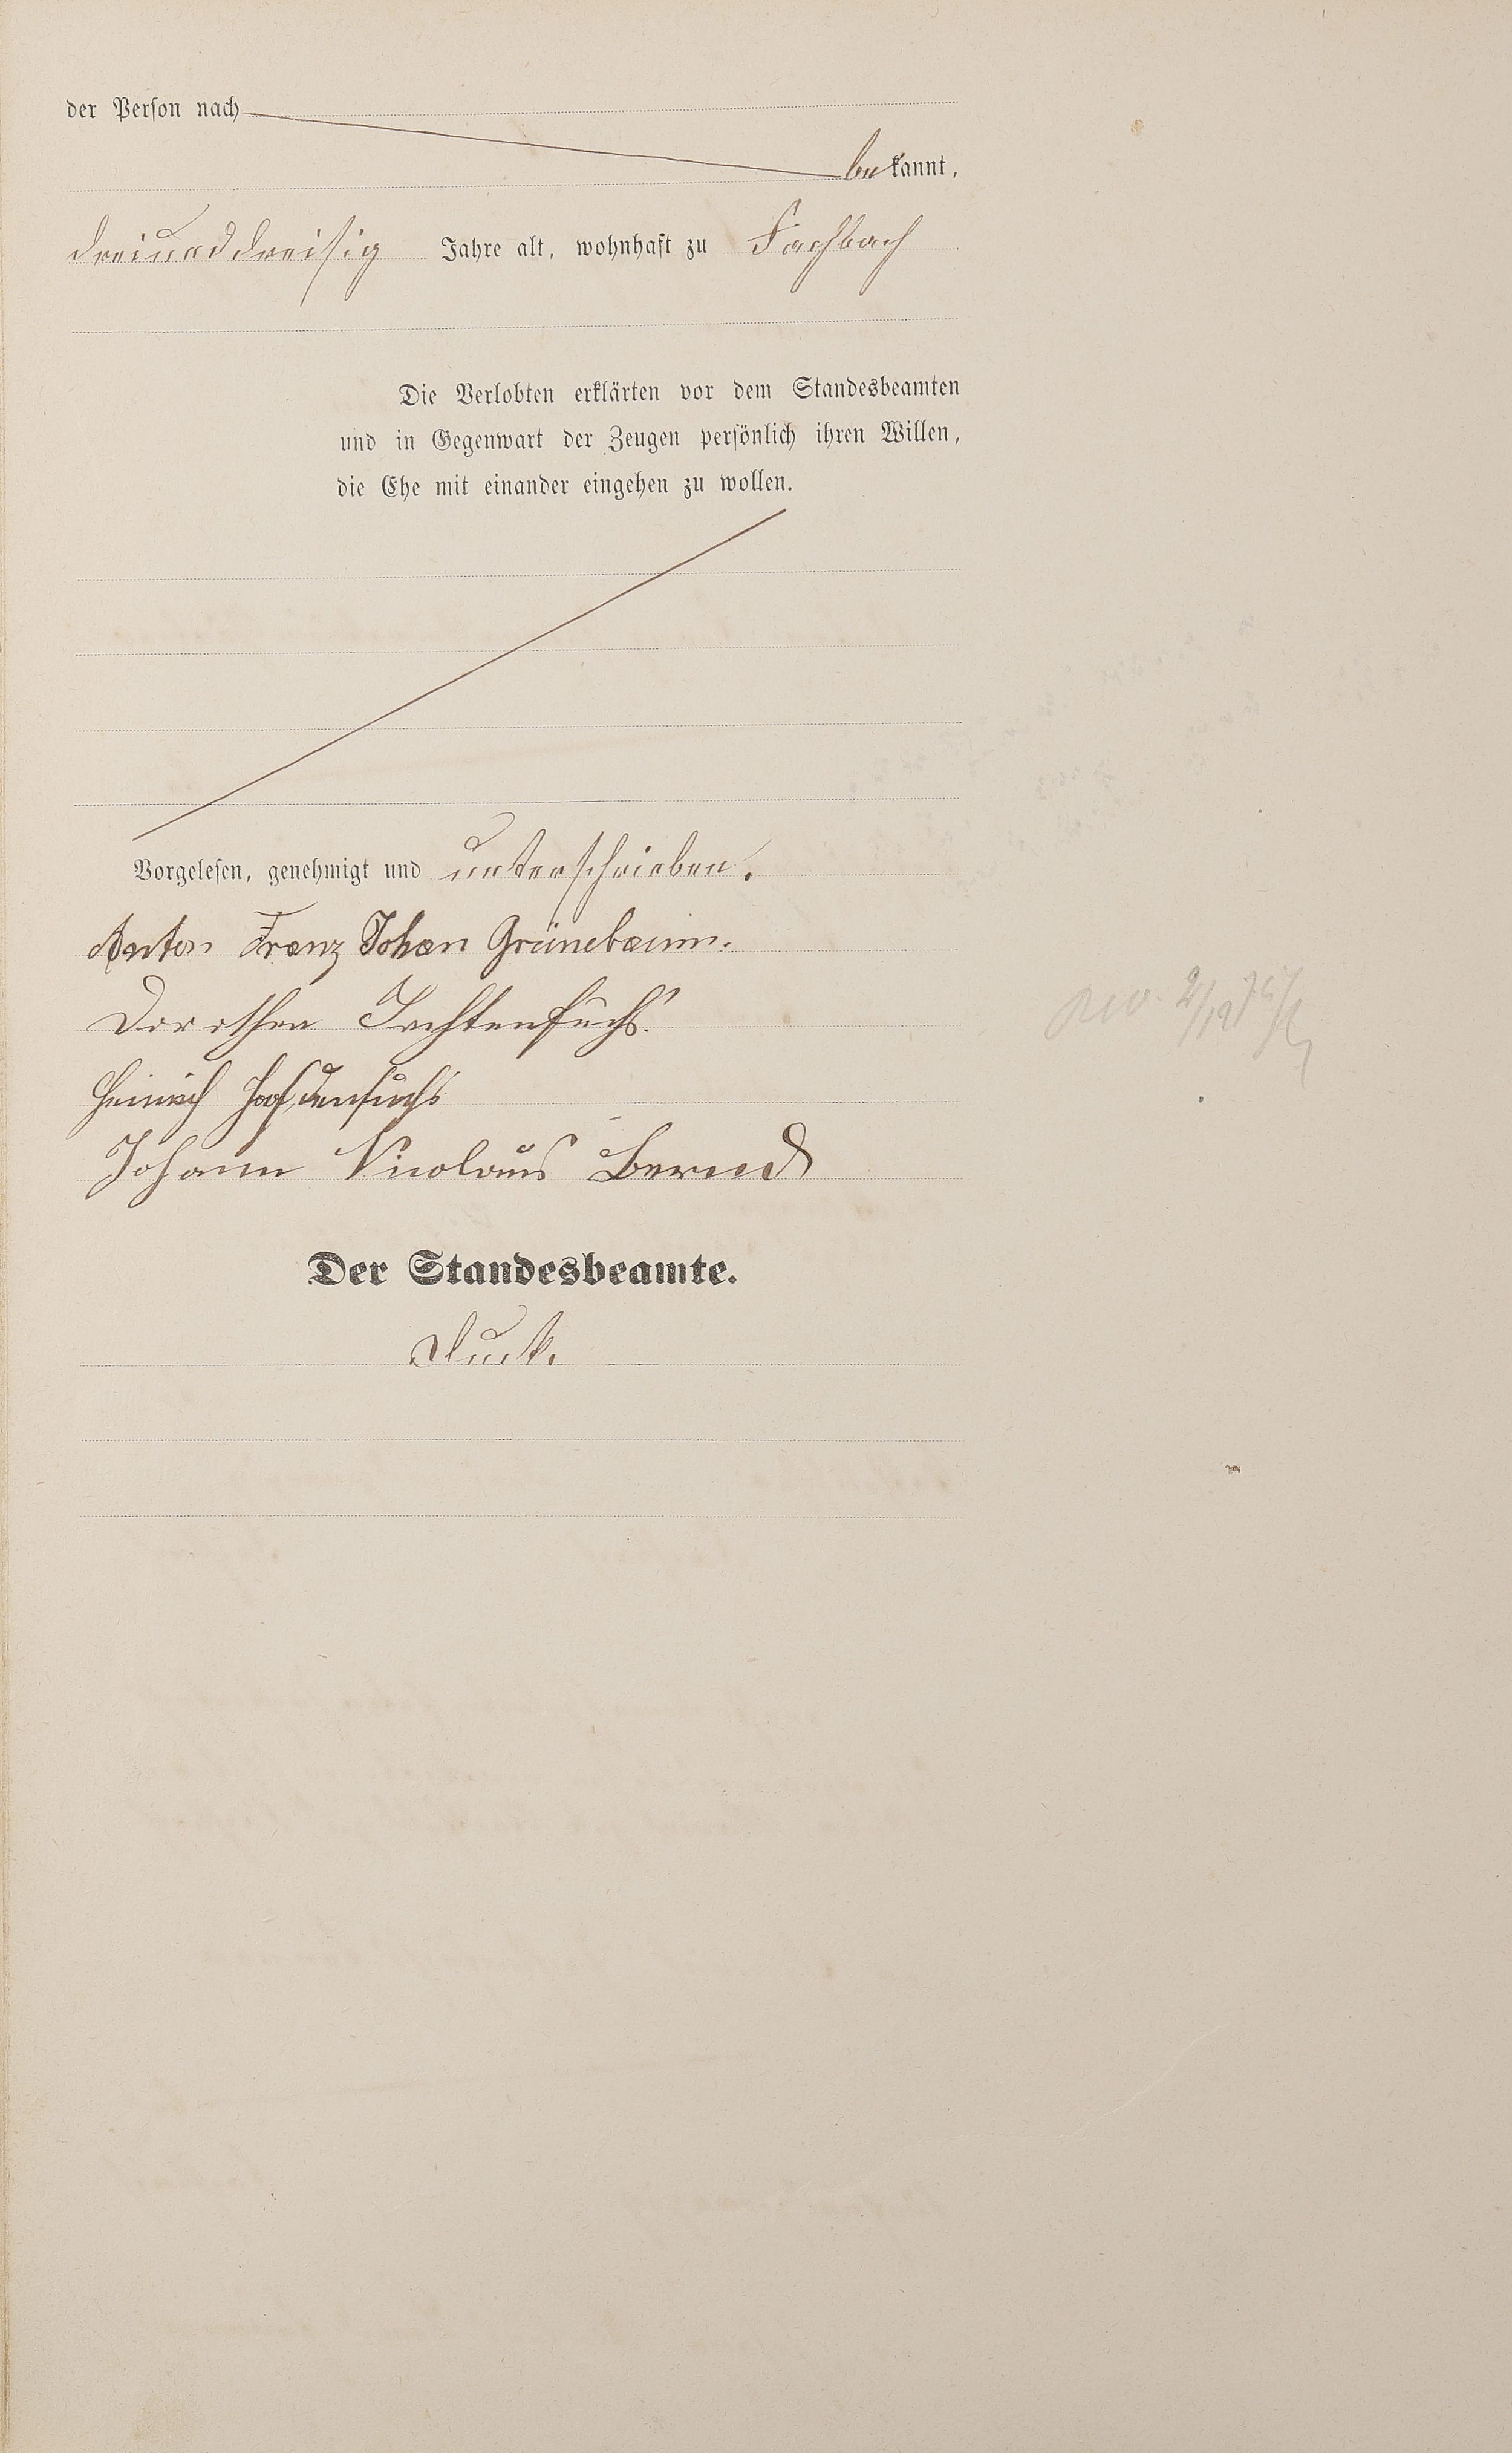 der Person nach
bekannt,
dreiunddreisig Jahre alt, wohnhaft zu Fachbach
Die Verlobten erklärten vor dem Standesbeamten
und in Gegenwart der Zeugen persönlich ihren Willen,
die Ehe mit einander eingehen zu wollen.
Vorgelesen, genehmigt und unterschrieben.
Anton Franz Johan Grünebaum.
Dorothea Lechtenfuchs.
Heinrich
Johann Nicolaus Bernd
Der Standesbeamte.